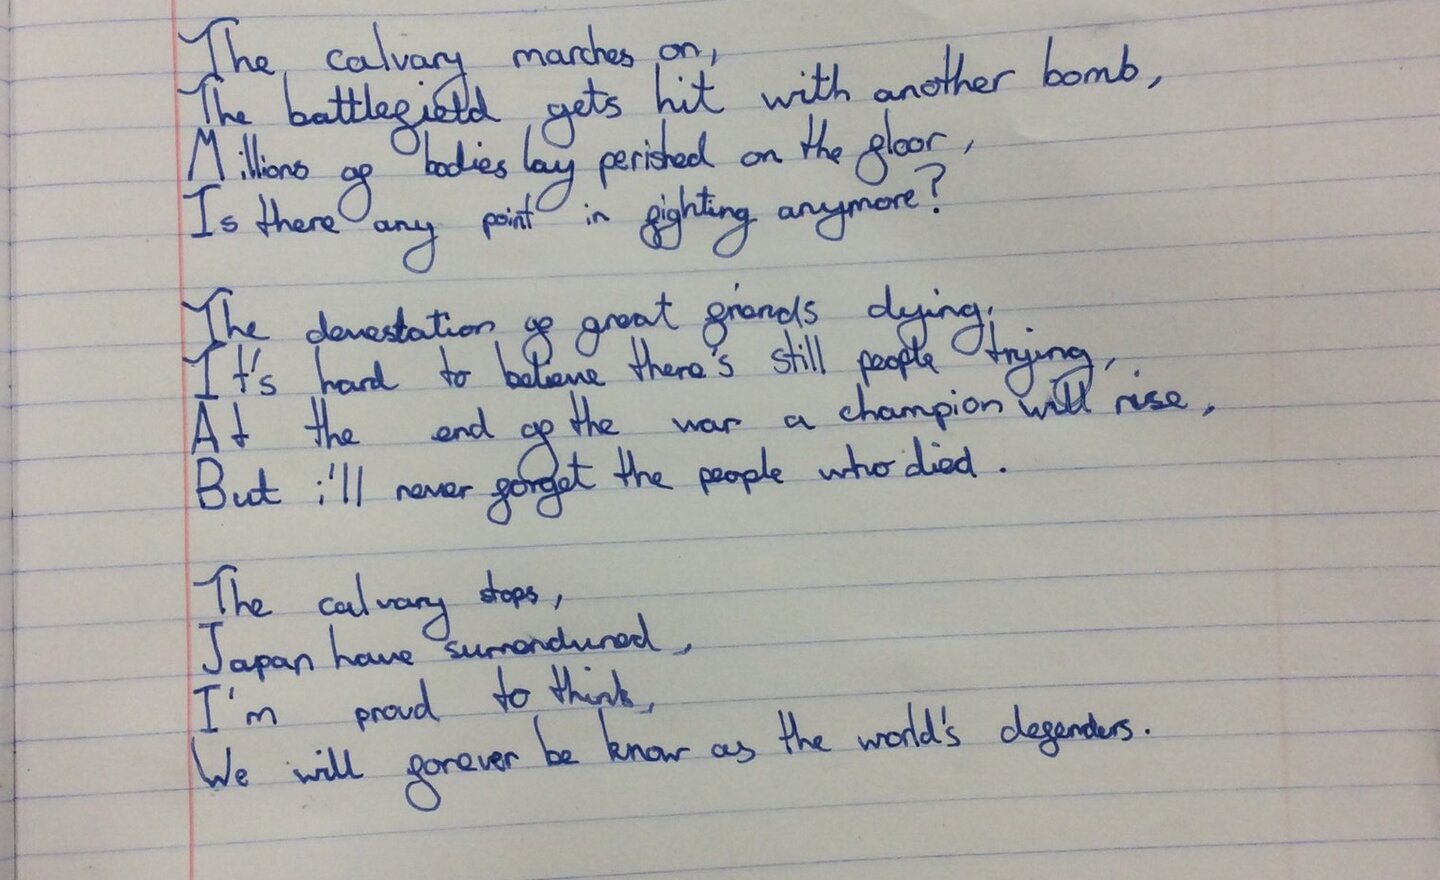 The calvary marches on,
The battlefield gets hit with another bomb,
Millions of bodies lay perished on the floor,
Is there any point in fighting anymore?
The devestation of great friends dying,
It's hard to believe there's still people trying,
At the end of the war a champion will rise,
But i'll never forget the people who died.
The calvary stops,
Japan have surrendured,
I'm proud to think,
We will forever be know as the world's defenders.